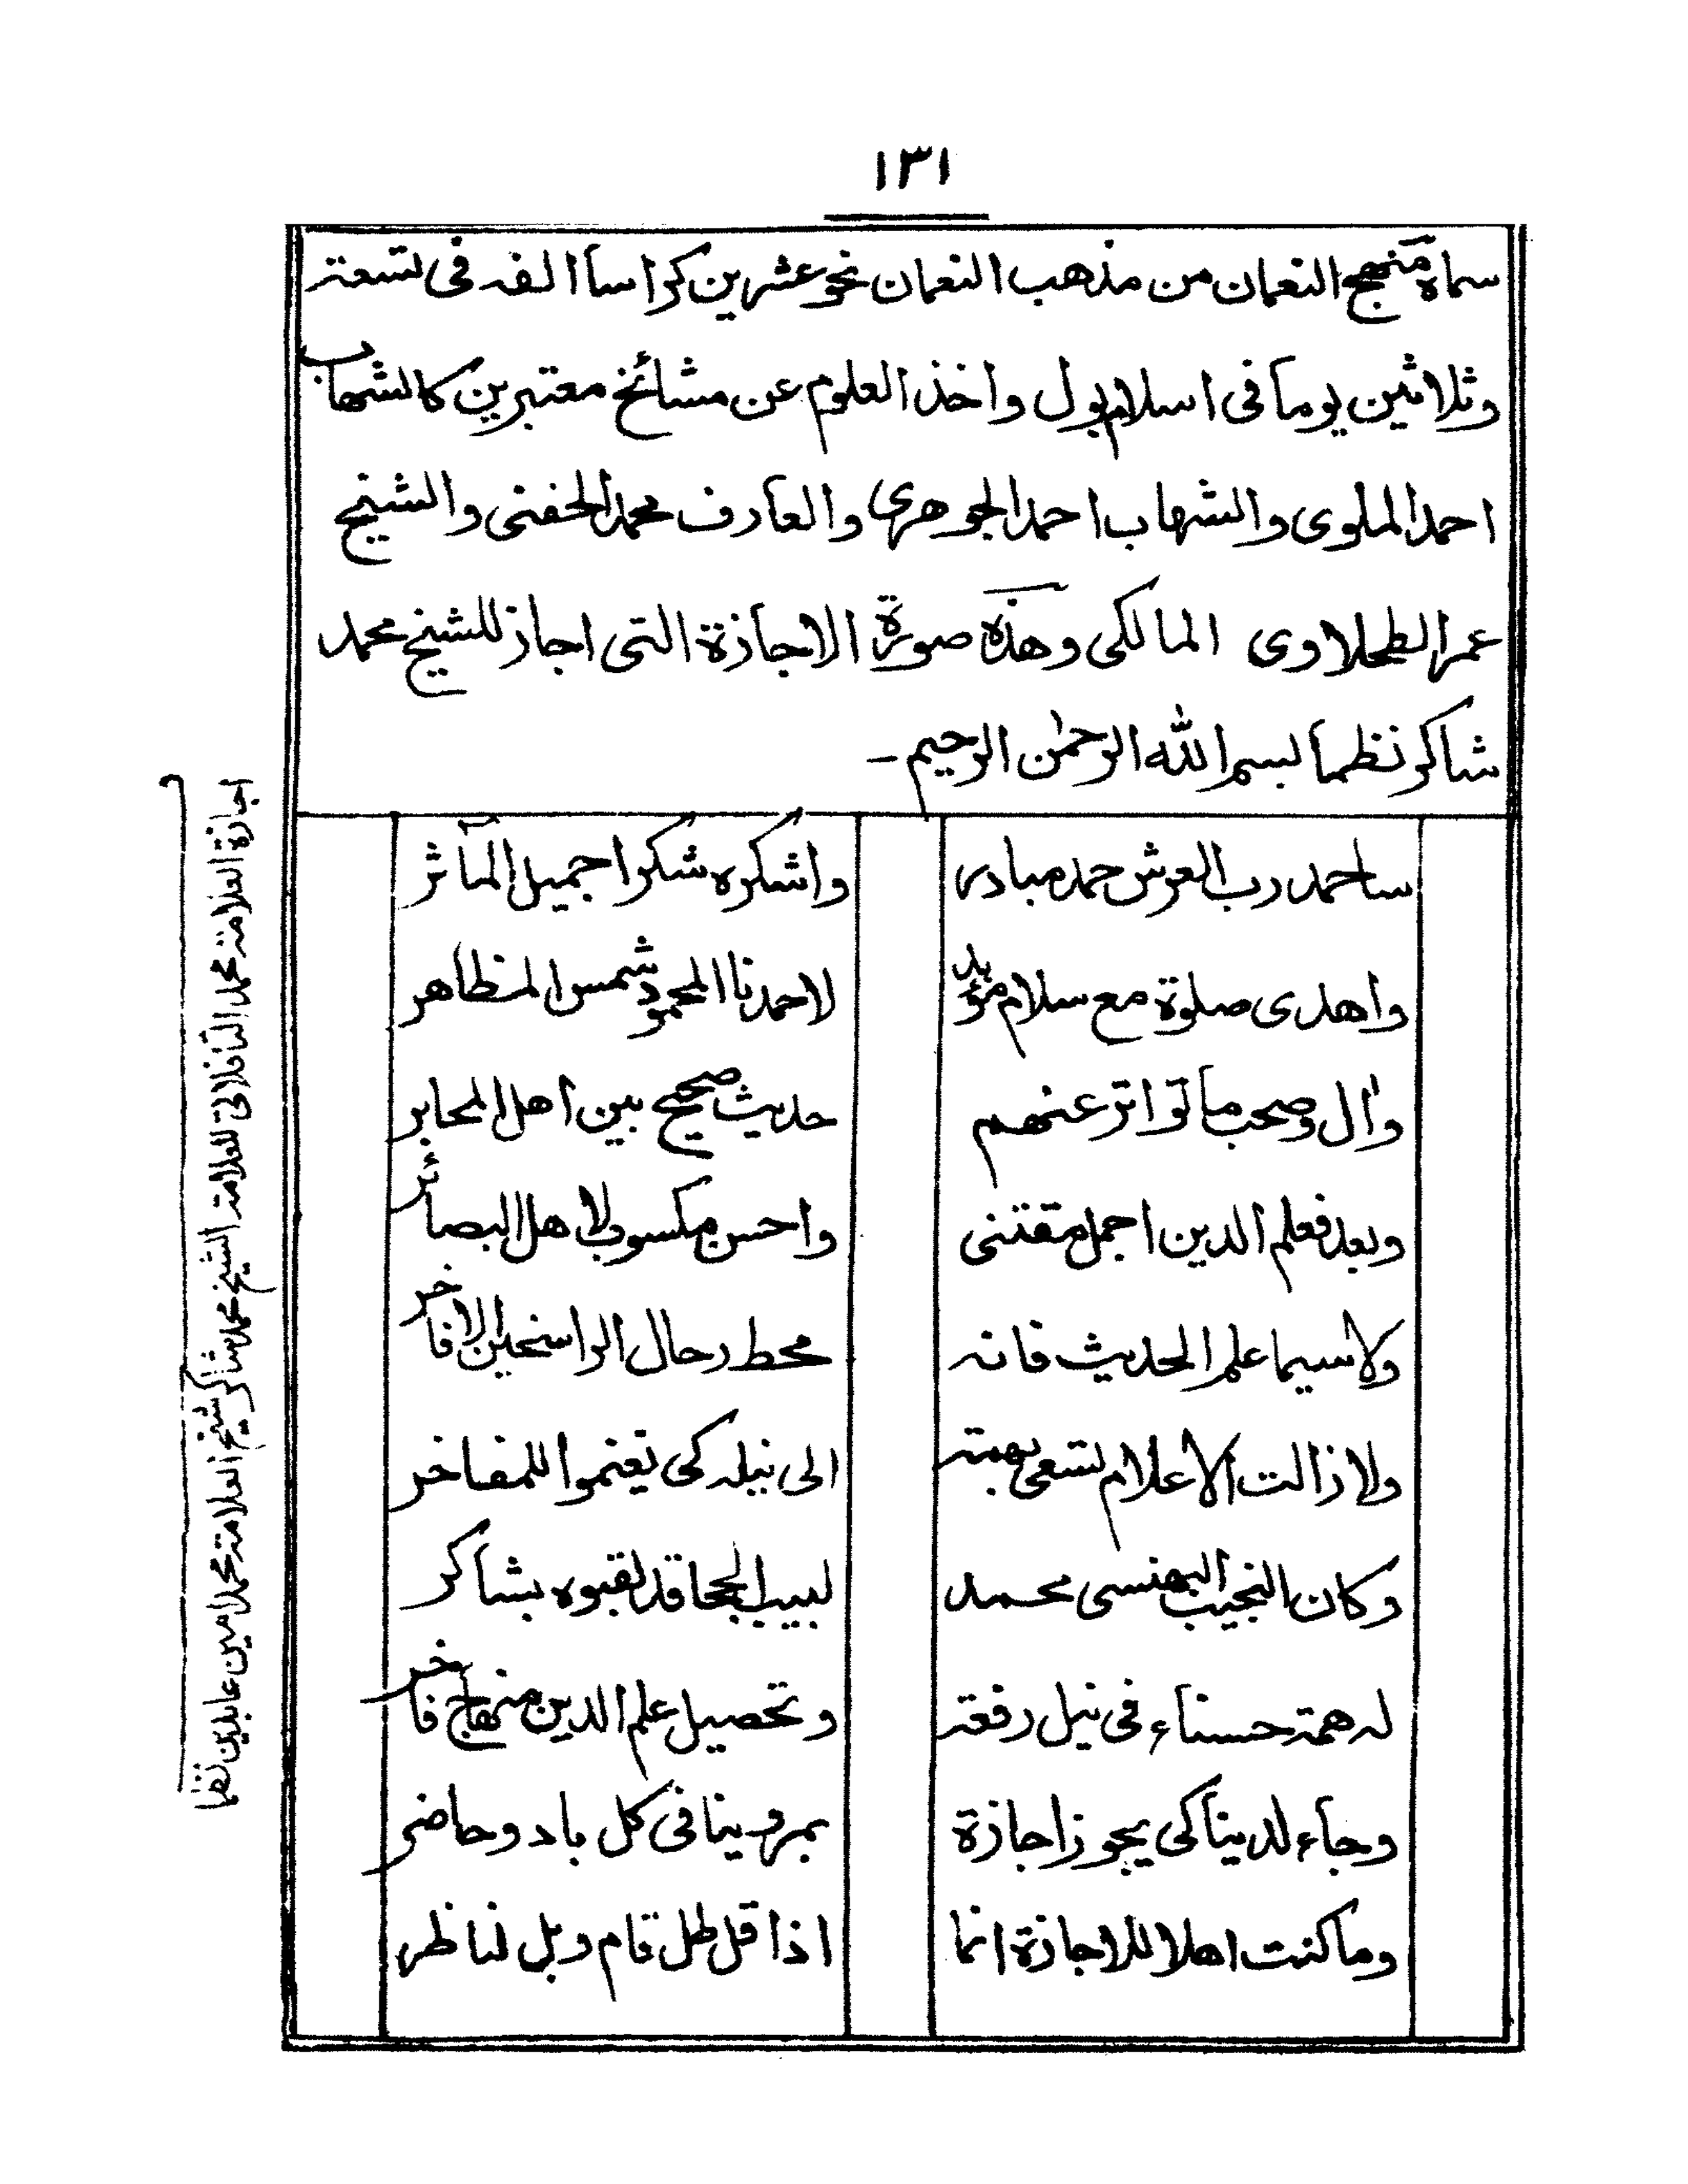 ١٣١
سماه منهج النعمان من مذهب النعمان نحو عشرين كراسا الفه فى تسعة
وثلاثين يوما فى اسلامبول واخذ العلوم عن مشائخ معتبرين كالشهاب
احمد الملوى والشهاب احمد الجوهرى والعارف محمد الحفنى والشيخ
عمر الطحلاوى المالكى وهذه صورة الاجازة التى اجاز للشيخ محمد
شاكر نظما بسم الله الرحمن الرحيم -
ساحمد رب العرش حمد مبادر واشكره شكرا جميل المآثر
واهدى صلوة مع سلام مؤبد لاحمدنا المحمود شمس المظاهر
وآل وصحب ما تواتر عنهم حديث صحيح بين اهل المحابر
وبعد فعلم الدين اجمل مقتنى واحسن مكسوب لاهل البصائر
ولا سيما علم الحديث فانه محط رحال الراسخين الافاخر
ولا زالت الاعلام تسعى بهمة الى نيله كى يغنموا للمفاخر
وكان النجيب البهنسى محمد لبيب الحجا قد لقبوه بشاكر
له همة حسناء فى نيل رفعة وتحصيل علم الدين منهاج فاخر
وجاء لدينا كى يجوز اجازة بمروينا فى كل باد وحاضر
وما كنت اهلا للاجازة انما اذا قل طل قام وبل لناظر
اجازة العلامة محمد التافلاتى للعلامة الشيخ محمد شاكر شيخ العلامة محمد امين عابدين نظما